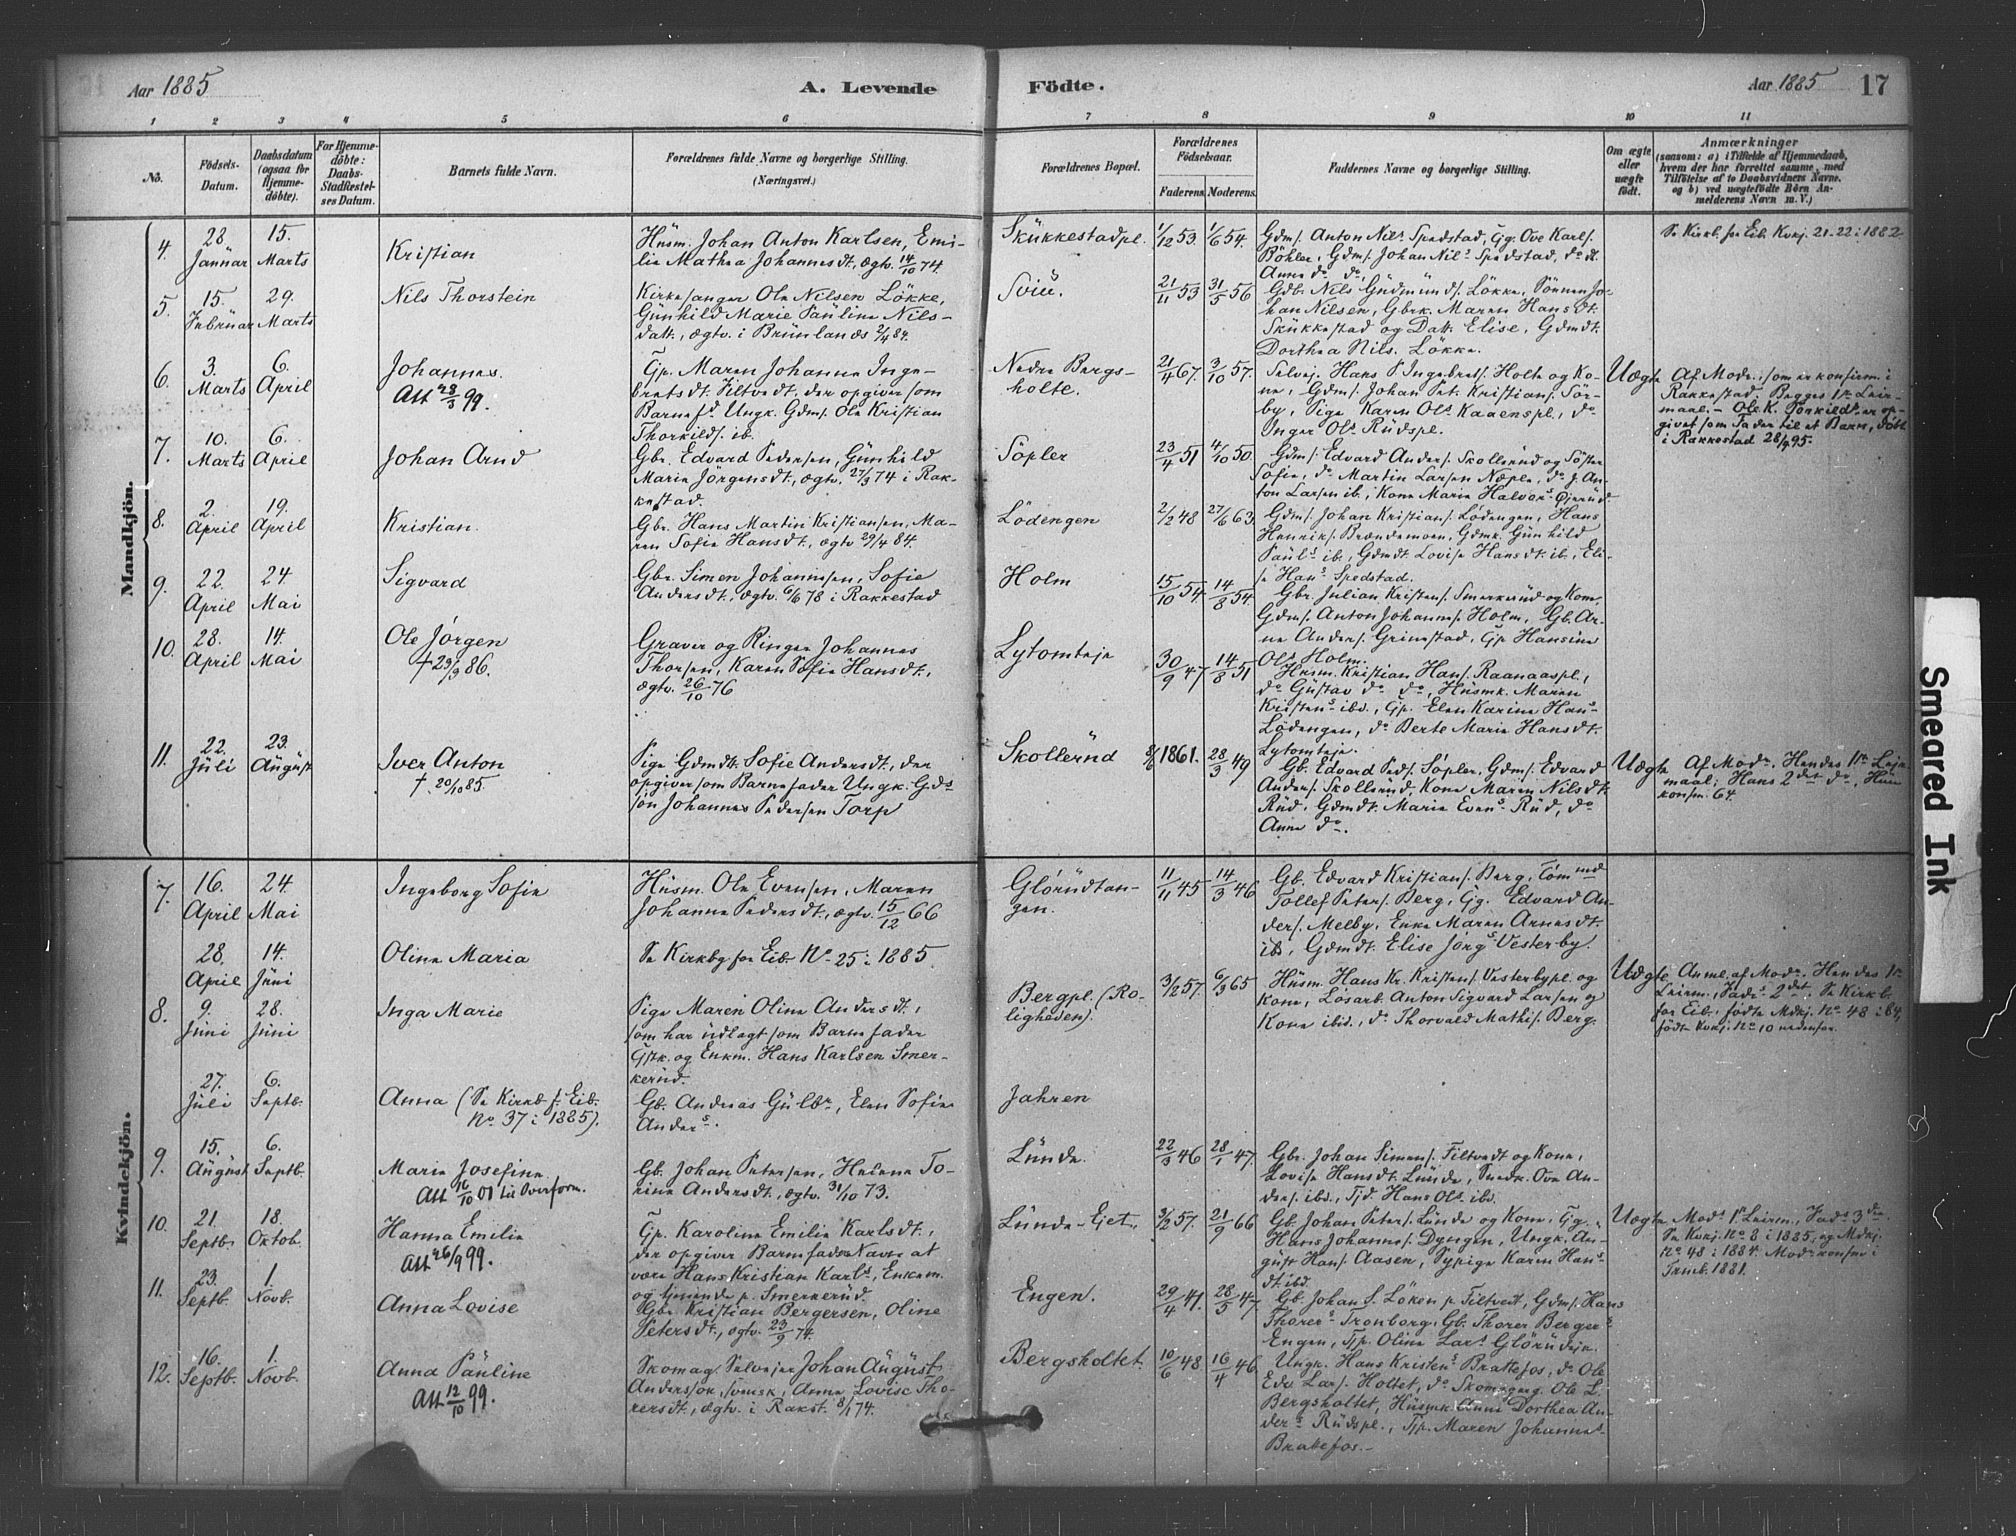 Aar 1885
A. Levende
Födte.
Aar 1885
17
1 2 3 4 5 6 7 8 9 10 11
No.
Födsels-
Datum.
Daabsdatum
(ogsaa for
Hjemme-
döbte).
For Hjemme-
döbte:
Daabs-
Stadfæstel-
ses Datum.
Barnets fulde Navn.
Forældrenes fulde Navne og borgerlige Stilling.
(Næringsvei.)
Forældrenes Bopæl.
Forældrenes
Födselsaar.
Faderens. Moderens.
Faddernes Navne og borgerlige Stilling.
Om ægte
eller
uægte
födt.
Anmærkninger
(saasom: a) i Tilfælde af Hjemmedaab,
hvem der har forrettet samme, med
Tilföielse af to Daabsvidners Navne,
og b) ved uægtefödte Börn An-
melderens Navn m. V.)
Mandkjön.
4.
28.
Januar
15.
Marts
Kristian
Husm. Johan Anton Karlsen, Emi-
lie Mathea Johannesdt., ægtv. 14/10 74.
Skukkestadpl.
1/12 53. 1/6 54.
Gdms. Anton Nils. Spedstad, Gg. Ove Karls.
Böhler, Gdms. Johan Nils. Spedstad, do dt.
Anna do do.
Se Kirkb. for Eib. Kvkj. 21-22 i 1882
5.
15.
Februar
29.
Marts
Nils Thorstein
Kirkesanger Ole Nilsen Lökke,
Gunhild Marie Pauline Nils-
datt., ægtv. i Brunlanæs 2/4 84.
Sviu.
21/11 53 31/5 56
Gdb. Nils Gudmunds. Lökke, Sönnen Jo-
han Nilsen, Gbrk. Maren Hansdt.
Skukkestad og Datt. Elise, Gdmdt.
Dorthea Nils. Lökke.
6.
3.
Marts
6.
April
Johannes.
Att 23/3 99.
Tjp. Maren Johanne Inge-
bretsdt. Filtvedt, der opgiver som
Barnefd. Ungk. Gdms. Ole Kristian
Thorkilds. ib.
Nedre Bergs-
holte.
21/4 67. 3/10 57.
Selvej. Hans P. Ingebrets. Holte og Ko-
ne, Gdms. Johan Pet. Kristians. Sör-
by, Pige Karen Ols. Kaaenspl., do
Inger Ols. Rudspl.
Uægte
Af Mode., som er konfirm. i
Rakkestad. Begges 1ste Leir-
maal. – Ole K. Torkilds. er op-
givet som Fader til et Barn, döbt
i Rakkestad 28/4 95.
7.
10.
Marts
6.
April
Johan Arnd
Gbr. Edvard Pedersen, Gunhild
Marie Jörgensdt., ægtv. 27/3 74 i Rak-
kestad.
Söpler
23/4 51 4/10 50.
Gdms. Edvard Anders. Skollerud og Söster
Sofie, do Martin Larsen Næple, do J. An-
ton Larsen ib., Kone Marie Halvors.
8.
2.
April
19.
April
Kristian.
Gbr. Hans Martin Kristiansen, Ma-
ren Sofie Hansdt., ægtv. 29/4 84.
Lödengen
2/2 48 27/6 63
Gdms. Johan Kristians. Lödengen, Hans
Henriks. Brændemoen, Gdmk. Gunhild
Pauls. ib., Gdmdt. Lovise Hansdt. ib., Eli-
se Hans. Spedstad.
9.
22.
April
24
Mai
Sigvard
Gbr. Simen Johannesen, Sofie
Andersdt., ægtv. 6/6 78 i Rakkestad
Holm
15/10 54 14/8 54.
Gbr. Julian Kristens. Smerkerud og Kone,
Gdms. Anton Johanns. Holm, Gb. Ar-
ne Anders. Grimstad, Tjp. Hansine
Ols. Holm.
10.
28.
April
14.
Mai
Ole Jörgen
† 29/9 86.
Graver og Ringer Johannes
Thorsen, Karen Sofie Hansdt.,
ægtv. 26/10 76
Lytomteje
30/9 47 14/8 51
Husm. Kristian Hans. Raanaaspl.,
do Gustav do do, Husmk. Maren
Kristens. ibd., Tjp. Elen Karine Hans.
Lödengen, do Berte Marie Hansdt.
Lytomteje.
11.
22.
Juli
23.
August
Iver Anton
† 20/10 85.
Pige Gdmdt. Sofie Andersdt., der
opgiver som Barnefader Ungk. Gds-
sön Johannes Pedersen Torp
Skollerud
8/6 1861. 28/3 49
Gb. Edvard Peds. Söpler, Gdms. Edvard
Anders. Skollerud, Kone Maren Nilsdt.
Rud, Gdmdt. Marie Evens. Rud, do
Anne do.
Uægte
Af Mode. Hendes 1ste Leje-
maal; Hans 2det do, Hun
konfm. 64.
Kvindekjön.
7.
16.
April
24.
Mai
Ingeborg Sofie
Husm. Ole Evensen, Maren
Johanne Pedersdt., ægtv. 15/12 66
Glörudtan-
gen.
11/11 45 14/3 46
Gb. Edvard Kristians. Berg, Tömmd
Tollef Peters. Berg, Gg. Edvard An-
ders. Melby, Enke Maren Arnesdt.
ib., Gdmdt. Elise Jörgs. Vesterby.
28.
April
14.
Juni
Oline Maria
Se Kirkbg for Eib. No 25 i 1885
8.
9.
Juni
28.
Juni
Inga Marie
Pige Maren Oline Andersdt.,
som har udlagt som Barnefader
Gstk. og Enkm. Hans Karlsen Smer-
kerud.
Bergpl. (Ro-
ligheden).
3/2 57. 6/3 65
Husm. Hans Kr. Kristens. Vesterbypl. og
Kone, Losarb. Anton Sigvard Larsen og
Kone ibid., do Thorvald Mathis. Berg.
Uægte
Anml. af Mode. Hendes 1ste
Leirm., Fads. 2det. Se Kirkb.
for Eib., födte Mdkj. No 48 i 84,
födte Kvkj. No 10 nedenfor.
27.
Juli
6.
Septb.
Anna (Se Kirkb. f. Eib.
No 37 i 1885).
Gb. Andreas Gulbr., Elen Sofie
Anders.
Jahren
9.
15.
August
6.
Septb.
Marie Josefine
Att 16/10 01 til Overform.
Gb. Johan Petersen, Helene To-
rine Andersdt., ægtv. 31/10 73.
Lunde.
22/3 46 28/1 47.
Gbr. Johan Simens. Filtvedt og Kone,
Lovise Hansdt. Lunde, Snedk. Ove An-
ders. ibd., Tjd. Hans Ols. ibd.
10.
21.
Septb.
18.
Oktob.
Hanna Emilie
Att 26/9 99.
Tjp. Karoline Emilie Karlsdt.,
der opgiver Barnefadrs Navn at
være Hans Kristian Karls., Enkem.
og tjenende p. Smerkerud.
Lunde-Ejet,
3/2 57. 21/9 66
Gb. Johan Peters. Lunde og Kone, Gg.
Hans Johannes. Dyngen, Ungk. Au-
gust Hans. Aasen, Sypige Karen Hans-
dt. ibd.
Uægte
Mods. 1ste Leirm., Fads. 3die
Se Kvkj. No 8 i 1885, og Mdkj.
No 48 i 1884. Modr. konfm. i
Trmb. 1881.
11.
23.
Septb.
1.
Novb.
Anna Lovise
Gbr. Kristian Bergersen, Oline
Petersdt., ægtv. 23/9 74.
Engen.
29/4 41. 28/5 47.
Gb. Johan S. Löken p. Filtvedt, Gdms. Hans
Thorers. Tronborg, Gb. Thorer Bergers.
Engen, Tjp. Oline Lars. Glörudeje.
12.
16.
Septb.
1.
Novb.
Anna Pauline
Att 12/10 99.
Skomag. Selvejer Johan August
Andersson, svensk, Anne Lovise Tho-
rersdt., ægtv. i Rakst. 8/1 74.
Bergsholtet.
10/6 48. 16/4 46
Ungk. Hans Kristens. Brattefos, do Ole
Edv. Lars. Holtet, do Skomagerg. Ole L.
Bergsholtet, Husmk. Anne Dorthea An-
ders. Rudspl., Tjp. Maren Johannes.
Brattefos.–
Smeared Ink